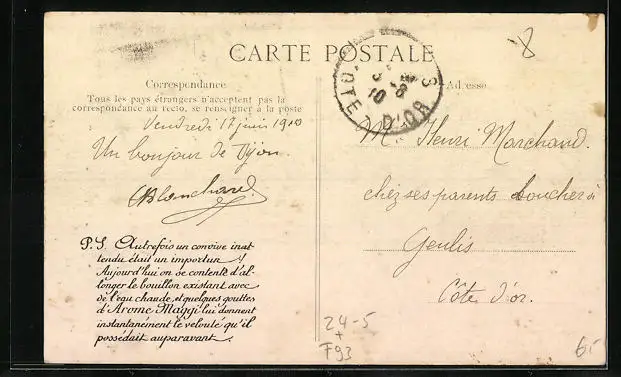 CARTE POSTALE
Correspondance
Tous les pays étrangers n'acceptent pas la
correspondance au recto, se renseigner à la poste
Vendredi 17 juin 1910
Un bonjour de Dijon.
Blanchard
P.S. Autrefois un convive inat-
tendu était un importun
Aujourd'hui on se contente d'al-
longer le bouillon existant avec
de l'eau chaude, et quelques gouttes
d'Arome Maggi lui donnent
instantanément le velouté qu'il
possédait auparavant.
Adresse
CÔTE D'OR
10
Mr Henri Marchand.
chez ses parents boucher à
Genlis
Côte d'or.
8
24-5
+
F93
6.-